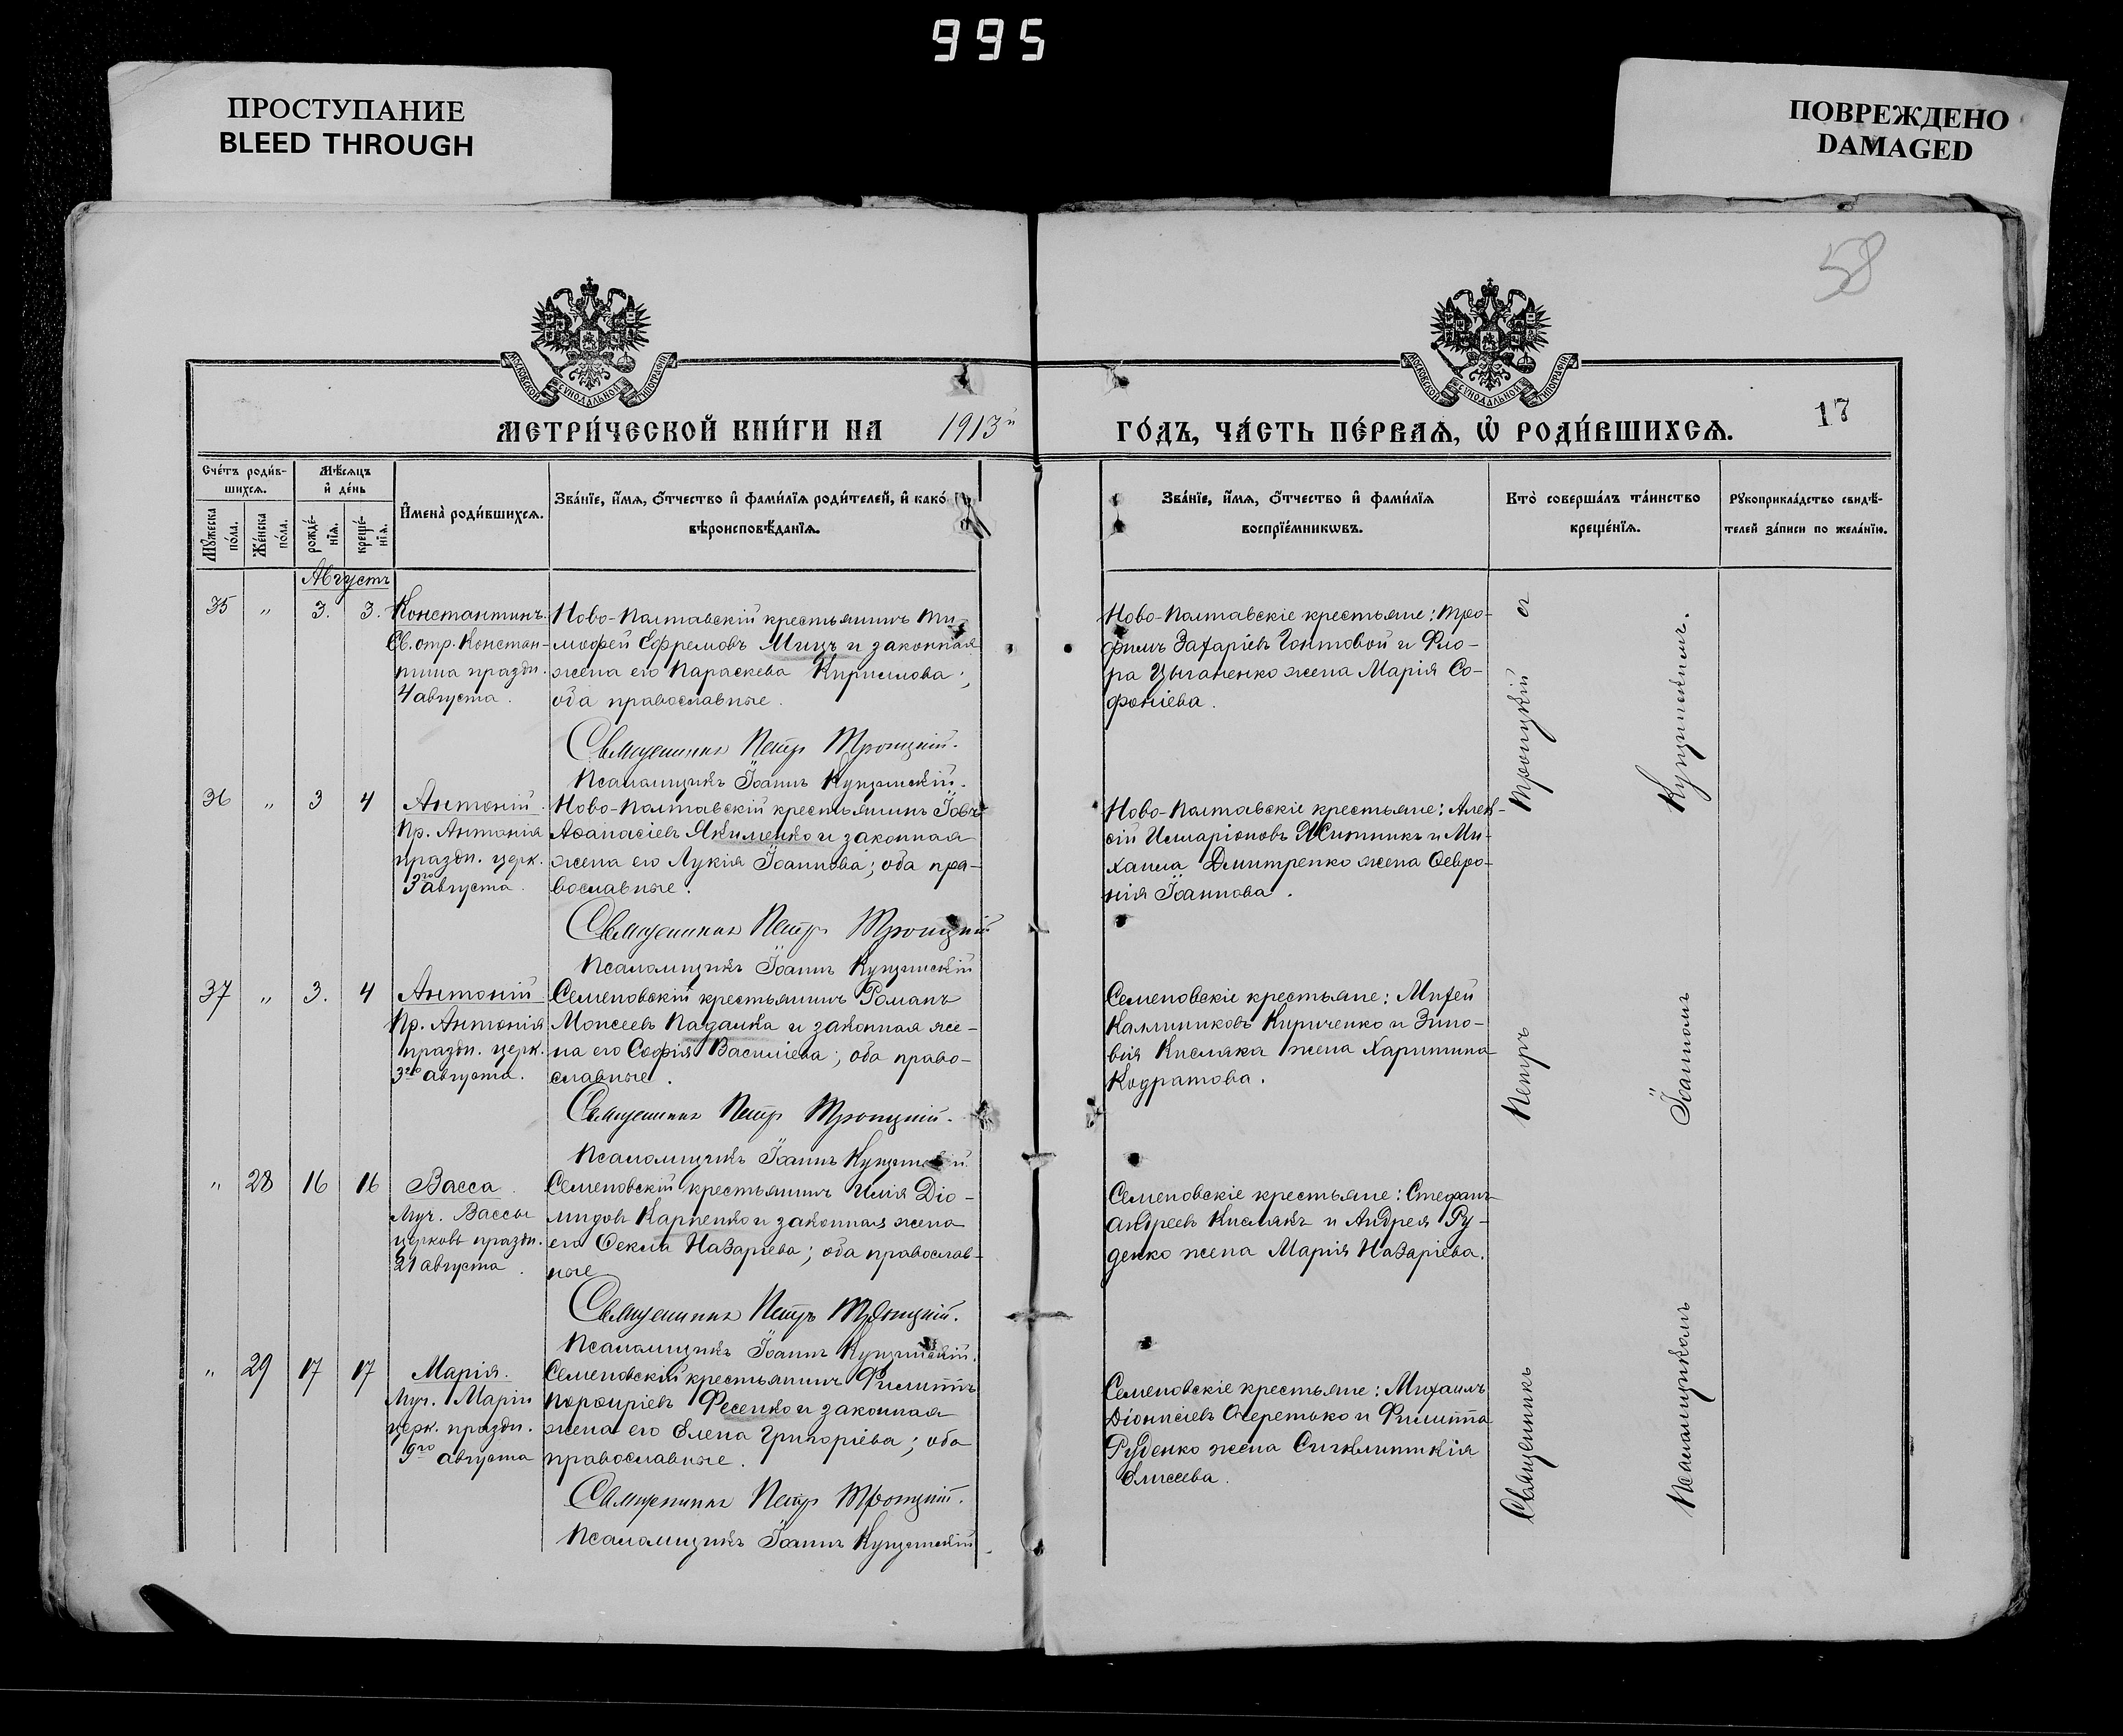 995
ПРОСТУПАНИЕ
BLEED THROUGH
ПОВРЕЖДЕНО
DAMAGED
58
МОСКОВСКОЙ СѴНОДАЛЬНОЙ ТИПОГРАФІИ
МОСКОВСКОЙ СѴНОДАЛЬНОЙ ТИПОГРАФІИ
МЕТРИ́ЧЕСКОЙ КНИ́ГИ НА 1913й
ГО́ДЪ, ЧА́СТЬ ПЕ́РВАѦ, Ѡ҆ РОДИ́ВШИХСѦ.
17
Сче́тъ роди́в-
шихсѧ.
Мѣ́сѧцъ
и҆ де́нь
Мꙋ́жеска по́ла.
Же́нска по́ла.
рожде́-
нїѧ.
креще́-
нїѧ.
И҆мена̀ роди́вшихсѧ.
Зва́нїе, и҆́мѧ, ѻ҆́тчество и҆ фами́лїѧ роди́телей, и҆ како́
вѣроисповѣ́данїѧ.
Зва́нїе, и҆́мѧ, ѻ҆́тчество и҆ фами́лїѧ
воспрїе́мникѡвъ.
Кто̀ соверша́лъ та́инство
креще́нїѧ.
Рꙋкоприкла́дство свидѣ́-
телей за́писи по жела́нїю.
Августъ
35 " 3. 3.
Константинъ.
Св. отр. Констан-
тина праздн.
4 августа.
Ново-Полтавскій крестьянинъ Ти-
мофей Ефремовъ Мицъ и законная
жена его Параскева Кириллова;
оба православные.
Священникъ Петръ Троицкій.
Псаломщикъ Іоаннъ
Ново-Полтавскіе крестьяне: Тро-
фимъ Захаріевъ Гонтовой и Фло-
ра Цыганенко жена Марія Со-
фоніева.
36 " 3 4
Антоній.
Пр. Антонія
праздн. церк.
3го августа.
Ново-Полтавскій крестьянинъ Іовъ
Аѳанасіевъ Якименко и законная
жена его Лукія Іоаннова; оба пра-
вославные.
Священникъ Петръ Троицкій
Псаломщикъ Іоаннъ
Ново-Полтавскіе крестьяне: Алек-
сій Илларіоновъ Житникъ и Ми-
хаила Дмитренко жена Ѳевро-
нія Іоаннова.
37 " 3. 4
Антоній
Пр. Антонія
праздн. церк.
3го августа.
Семеновскій крестьянинъ Романъ
Моисеевъ Падалка и законная же-
на его Софія Василіева; оба право-
славные.
Священникъ Петръ Троицкій.
Псаломщикъ Іоаннъ
Семеновскіе крестьяне: Михей
Каллиниковъ Кириченко и Зино-
вія Кисляка жена Харитина
Кодратова.
" 28 16 16
Васса.
Муч. Вассы
церковь праздн.
21 августа.
Семеновскій крестьянинъ Илія Діо-
мидовъ Карпенко и законная жена
его Ѳекла Назаріева; оба православ-
ные
Священникъ Петръ Троицкій.
Псаломщикъ Іоаннъ
Семеновскіе крестьяне: Стефанъ
Андреевъ Кислякъ и Андрея Ру-
денко жена Марія Назаріева.
" 29 17 17
Марія.
Муч. Маріи
церк. праздн.
9го августа
Семеновскій крестьянинъ Филиппъ
Порфиріевъ Фесенко и законная
жена его Елена Григоріева; оба
православные.
Священникъ Петръ Троицкій.
Псаломщикъ Іоаннъ
Семеновскіе крестьяне: Михаилъ
Діонисіевъ Очеретько и Филиппа
Руденко жена Сигклитикія
Елисеева.
Священникъ Петръ Троицкій съ
Псаломщикомъ Іоанномъ